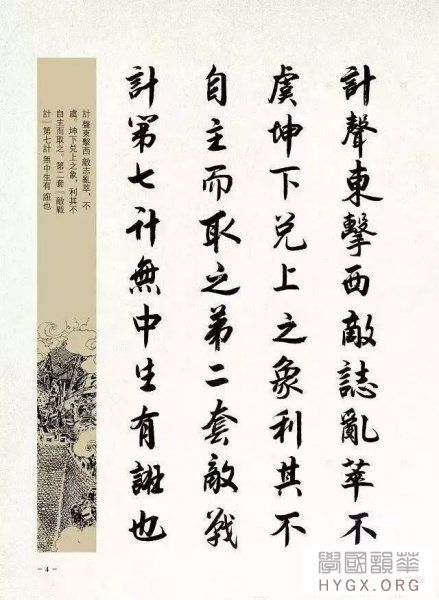 計聲東擊西敵誌亂萃不
虞坤下兑上之象利其不
自主而取之第二套敵戰
計第七計無中生有誑也
計 聲東擊西 敵志亂萃，不
虞。坤下兑上之象，利其不
自主而取之。第二套「敵戰
計」第七計 無中生有 誑也
-4-
華韻國學
HYGX.ORG